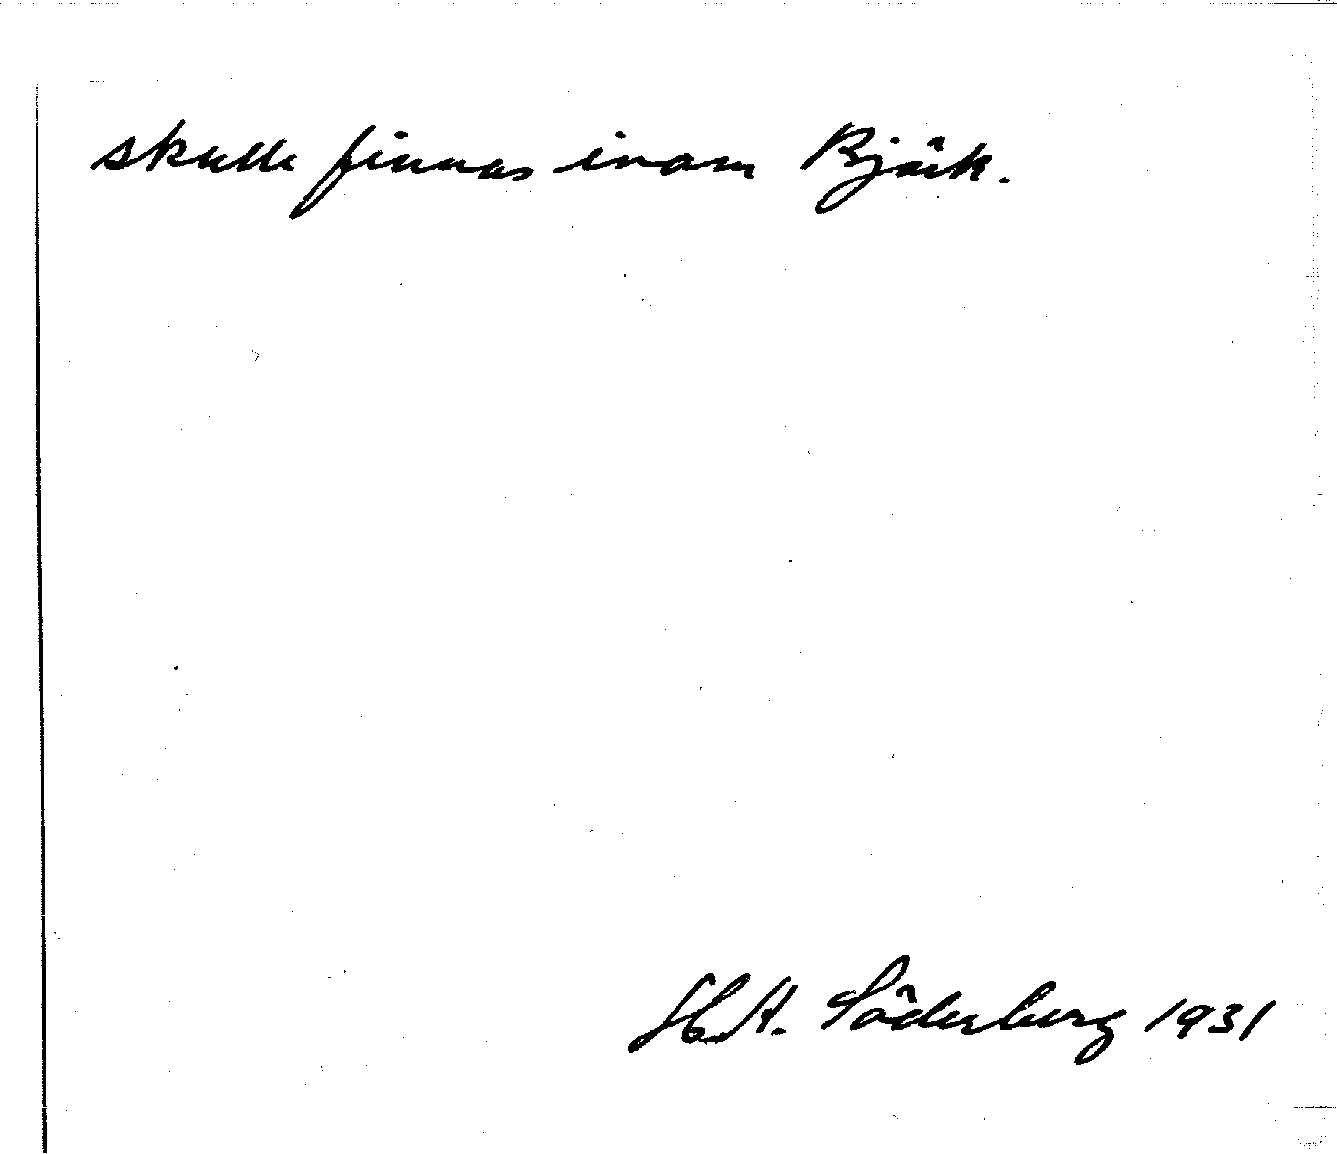 skulle finnas inom Björk.
H. A. Söderberg 1931